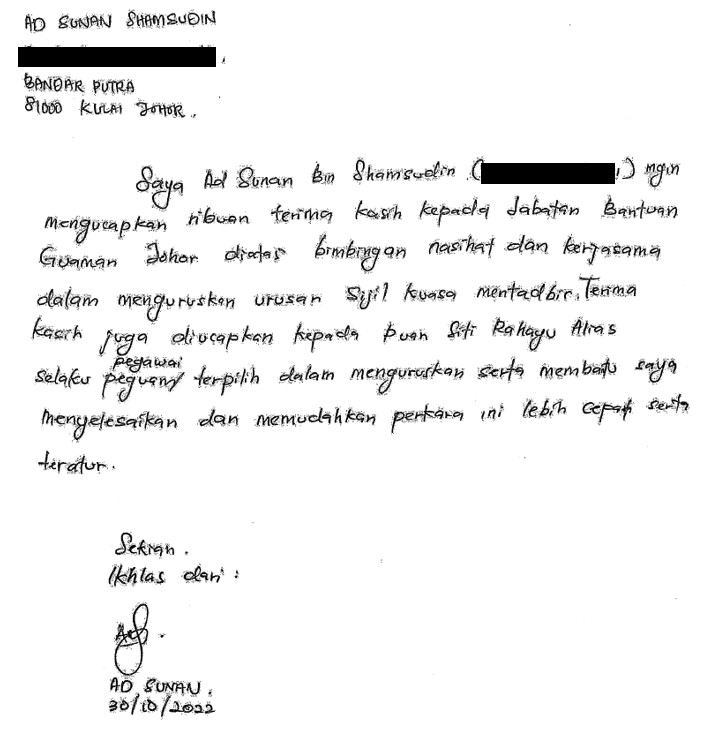 AD SUNAN SHAMSUDIN
,
BANDAR PUTRA
81000 KULAI JOHOR.
Saya Ad Sunan Bin Shamsudin ( ,) ingin
mengucapkan ribuan terima kasih kepada Jabatan Bantuan
Guaman Johor diatas bimbingan nasihat dan kerjasama
dalam menguruskan urusan Sijil kuasa mentadbir. Terima
kasih juga diucapkan kepada puan Siti Rahayu Alias
pegawai
selaku peguam/ terpilih dalam menguruskan serta membatu saya
menyelesaikan dan memudahkan perkara ini lebih cepat serta
teratur.
Sekian.
Ikhlas dari :
AD SUNAN.
30/10/2022